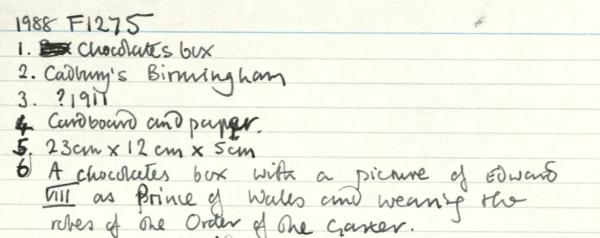 1988 F1275
1. Chocolates box
2. Cadbury's Birmingham
3. ?1911
4. Cardboard and paper.
5. 23cm x 12cm x 5cm
6 A chocolates box with a picture of Edward
VIII as Prince of Wales and wearing the
robes of the Order of the Garter.